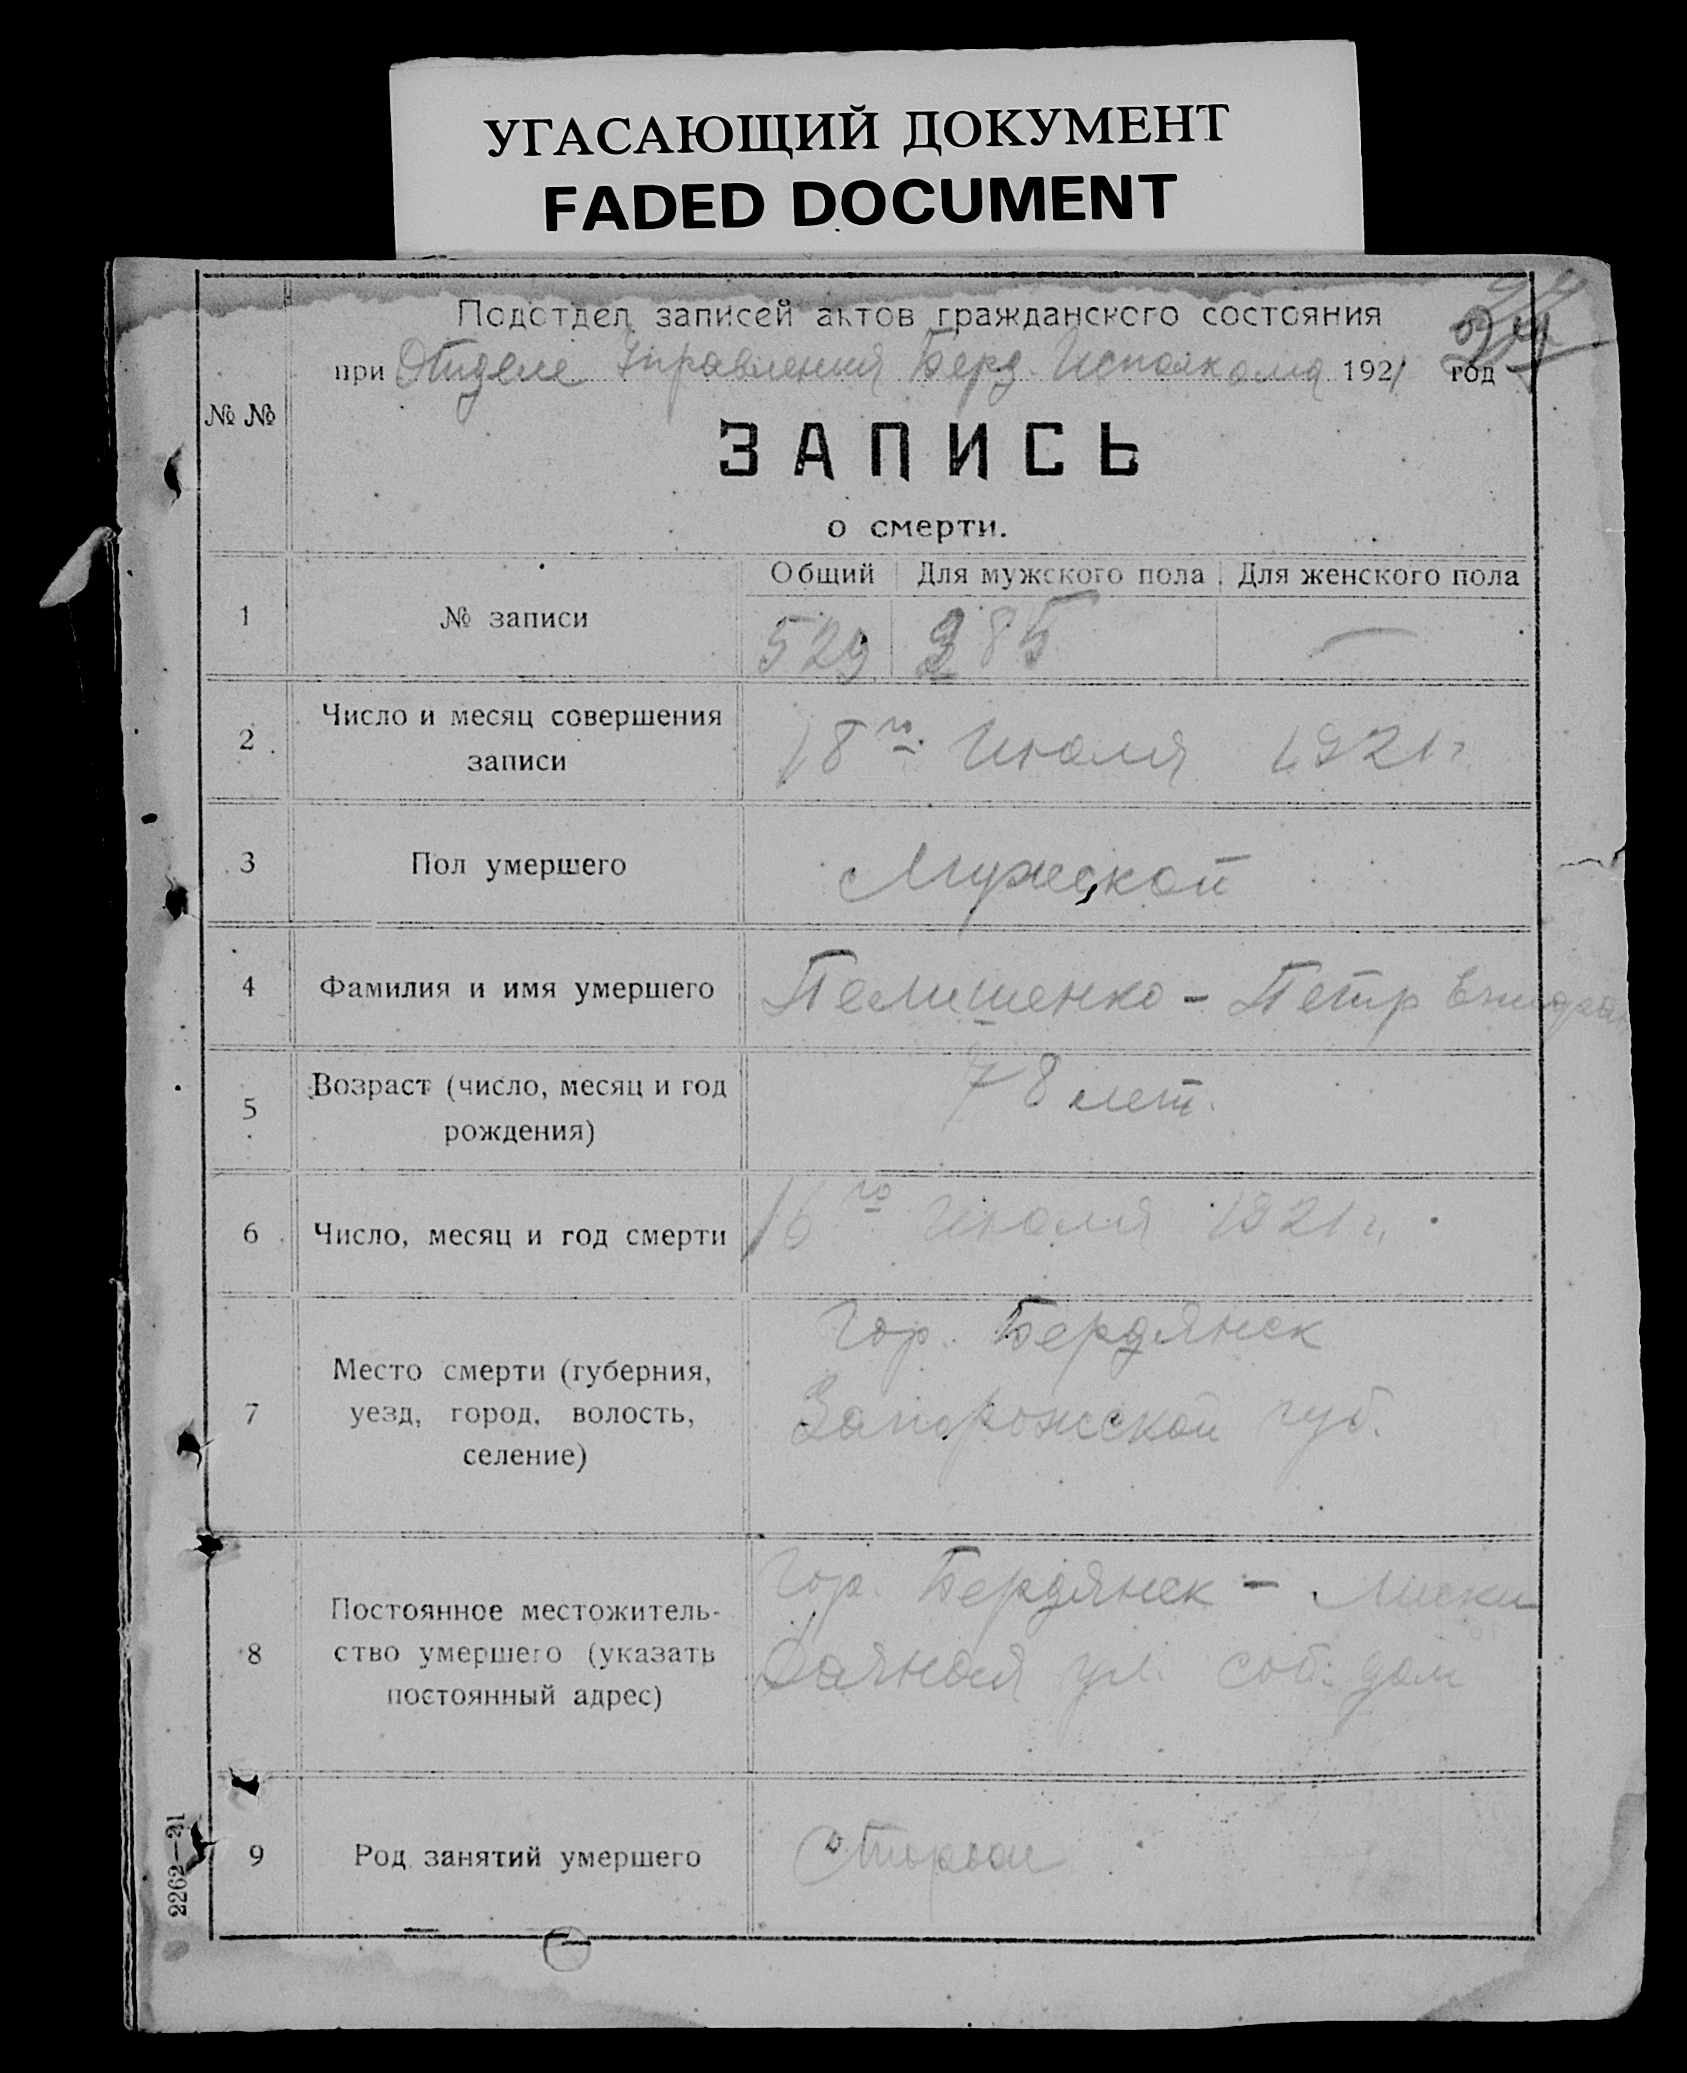 УГАСАЮЩИЙ ДОКУМЕНТ
FADED DOCUMENT
Подотдел записей актов гражданского состояния
при Отделе Управления Берд. Исполкома 1921 год
№ №
ЗАПИСЬ
о смерти.
Общий Для мужского пола Для женского пола
1 № записи 529 285 —
2 Число и месяц совершения записи 18го Июля 1921 г
3 Пол умершего Мужской
4 Фамилия и имя умершего Пелишенко - Петр
5 Возраст (число, месяц и год рождения) 78 лет.
6 Число, месяц и год смерти 16го Июля 1921 г.
7 Место смерти (губерния, уезд, город, волость, селение)
Гор. Бердянск
Запорожской губ.
8 Постоянное местожитель-
ство умершего (указать
постоянный адрес)
Гор. Бердянск -
ул. соб. дом
9 Род занятий умершего
2262—21